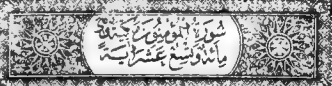 سُورَةُ المُؤمِنُونَ مَكِّيَّةٌ
مِائَة وَتِسْعَ عَشَرَ آيَةً